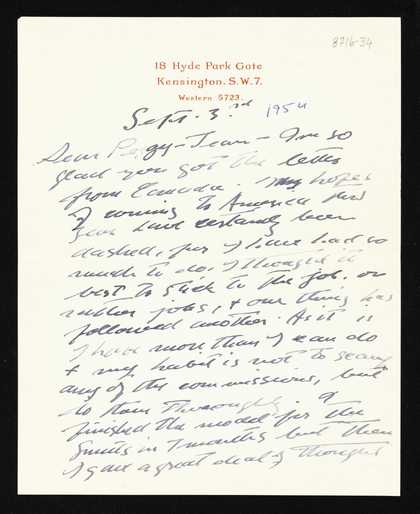 8716-34
18 Hyde Park Gate
Kensington. S.W.7.
Western 5723.
Sept. 3rd 1954
Dear Peggy-Jean - I'm so
glad you got the letter
from Canada. My hopes
of coming to America this
year have certainly been
dashed, for I have had so
much to do. I thought it
best to stick to the job, or
rather jobs, & one thing has
followed another. As it is
I have more than I can do
& my habit is not to
any of the commissions, but
do them thoroughly. I
finished the model for the
Smuts in 7 months but then
I gave a great deal of thought